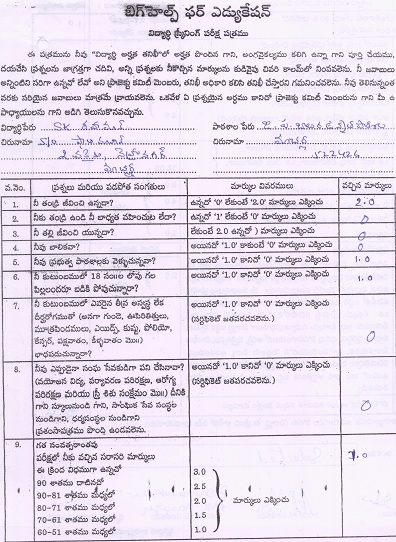 బిగ్‌హెల్ప్ ఫర్ ఎడ్యుకేషన్
విద్యార్థి స్క్రీనింగ్ పరీక్ష పత్రము
ఈ పత్రమును నీవు "విద్యార్థి అర్హత తనిఖీ"లో అర్హత పొందిన గాని, అంగవైకల్యము కలిగి ఉన్నా గాని పూర్తి చేయుము,
దయచేసి ప్రశ్నలను జాగ్రత్తగా చదివి, అన్ని ప్రశ్నలకు నీకొచ్చిన మార్కులను కుడివైపు చివరి కాలమ్‌లో నింపవలెను. నీ జవాబులు
అన్నింటిని సరిగా ఉన్నవో లేవో అని ప్రాజెక్టు కమిటీ మెంబరు, తనిఖీ అధికారి కలిసి తనిఖీ చేస్తారని గమనించవలెను. నీవు తెలిసినంత
వరకు సరియైన జవాబులు మాత్రమే వ్రాయవలెను. ఒకవేళ ఏ ప్రశ్నయైన అర్థము కానిచో ప్రాజెక్టు కమిటీ మెంబరును గాని మీ ఉ
పాధ్యాయులను గాని అడిగి తెలుసుకొనవచ్చును.
విద్యార్థిపేరు SK పాఠశాల పేరు
చిరునామా చిరునామా
522426
వ.నెం. ప్రశ్నలు మరియు పదపోత సంగతులు మార్కుల వివరములు వచ్చిన మార్కులు
1. నీ తండ్రి జీవించి ఉన్నాడా? ఉన్నచో '0' లేకుంటే '2.0' మార్కులు ఎక్కించు 2.0
2. నీకు తండ్రి ఉండి నీ బాధ్యత వహించుట లేదా? ఉన్నచో '1' లేకుంటే '0' మార్కులు ఎక్కించు 0
3. నీ తల్లి జీవించి యున్నదా? లేకుంటే 2.0 ఉన్నచో ) మార్కులు ఎక్కించు 0
4. నీవు బాలికవా? అయినచో '1.0' కాకుంటే '0' మార్కులు ఎక్కించు 0
5. నీవు ప్రభుత్వ పాఠశాలకు వెళ్ళుచున్నావా? అయినచో '1.0' కానిచో '0' మార్కులు ఎక్కించు 1.0
6. నీ కుటుంబములో 18 సంIIల లోపు గల అయినచో '1.0' కానిచో '0' మార్కులు ఎక్కించు 1.0
పిల్లలందరూ బడికి పోవుచున్నారా?
7. నీ కుటుంబములో ఎవరైన తీవ్ర అస్వస్థ లేక అయినచో '1.0' కానిచో '0' మార్కులు ఎక్కించు
దీర్ఘరోగముతో (అనగా గుండె, ఊపిరితిత్తులు, (సర్టిఫికెట్ జతపరచవలెను.)
మూత్రపిండములు, ఎయిడ్స్, కుష్ఠు, పోలియో, 0
కేన్సర్, పక్షవాతం, కీళ్ళవాతం మొII)
భాధపడుచున్నారా?
8. నీవు ఎప్పుడైనా సంఘ సేవకుడిగా పని చేసినావా? అయినచో '1.0' కానిచో '0' మార్కులు ఎక్కించు
(వయోజన విద్య, పర్యావరణ పరిరక్షణ, ఆరోగ్య (సర్టిఫికెట్ జతపరచవలెను.)
పరిరక్షణ మరియు స్త్రీ శిశు సంక్షేమం మొII) దీనికి
గాని స్కూలునుండి గాని, సాంఘిక సేవ సంస్థల 0
నుండిగాని, ధర్మసంస్థల నుండిగాని
ప్రశంసాపత్రము పొంది ఉండవలెను.
9. గత సంవత్సరాంతపు 1.0
పరీక్షలో నీకు వచ్చిన సరాసరి మార్కులు
ఈ క్రింద విధముగా ఉన్నచో 3.0
90 శాతము దాటినచో 2.5
90-81 శాతము మధ్యలో 2.0 మార్కులు ఎక్కించు
80-71 శాతము మధ్యలో 1.5
70-61 శాతము మధ్యలో 1.0
60-51 శాతము మధ్యలో